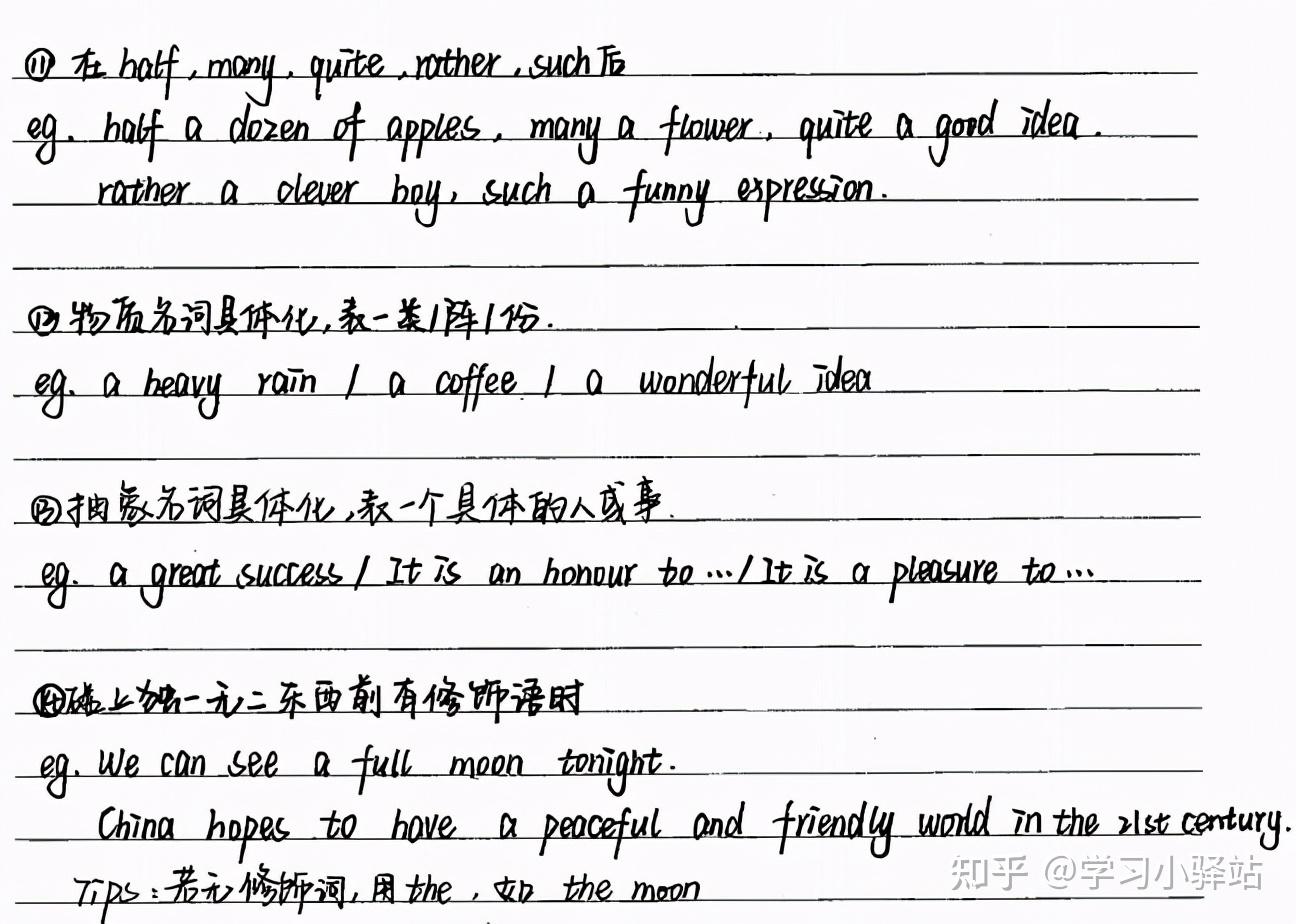 ⑪ 在 half, many, quite, rather, such 后
eg. half a dozen of apples, many a flower, quite a good idea.
rather a clever boy, such a funny expression.
⑫ 物质名词具体化,表一类/阵/份.
eg. a heavy rain / a coffee / a wonderful idea
⑬ 抽象名词具体化,表一个具体的人或事.
eg. a great success / It is an honour to … / It is a pleasure to …
⑭ 碰上独一无二东西前有修饰语时
eg. We can see a full moon tonight.
China hopes to have a peaceful and friendly world in the 21st century.
Tips: 若无修饰词,用 the , 如 the moon
知乎 @学习小驿站